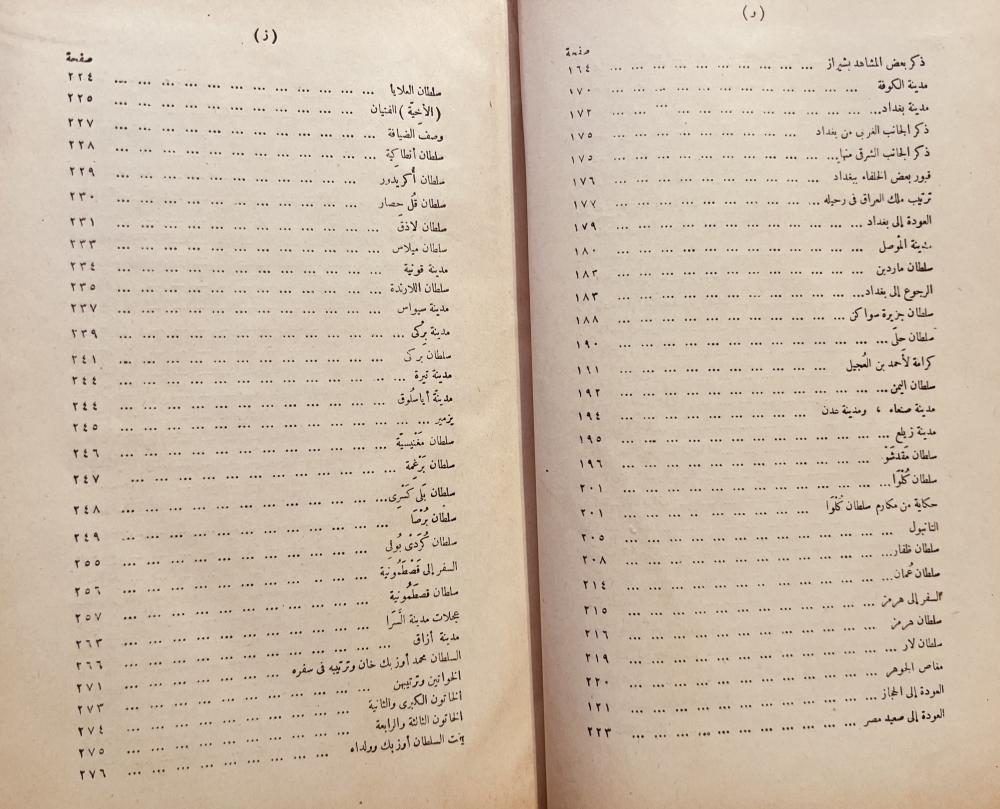 (و)
صفحة
ذكر بعض المشاهد بشيراز ... ١٦٤
مدينة الكوفة ... ١٧٠
مدينة بغداد ... ١٧٢
ذكر الجانب الغربى من بغداد ... ١٧٥
ذكر الجانب الشرقى منها ... ١٧٥
قبور بعض الخلفاء ببغداد ... ١٧٦
ترتيب ملك العراق فى رحيله ... ١٧٧
العودة إلى بغداد ... ١٧٩
مدينة الموصل ... ١٨٠
سلطان ماردين ... ١٨٣
الرجوع إلى بغداد ... ١٨٣
سلطان جزيرة سواكن ... ١٨٨
سلطان حلى ... ١٩٠
كرامة لأحمد بن العُجيل ... ١٩١
سلطان اليمن ... ١٩٢
مدينة صنعاء ، ومدينة عدن ... ١٩٤
مدينة زيلع ... ١٩٥
سلطان مَقْدشَوْ ... ١٩٦
سلطان كُلْوَا ... ٢٠١
حكاية من مكارم سلطان كُلْوَا ... ٢٠١
التانبول ... ٢٠٥
سلطان ظفار ... ٢٠٨
سلطان عُمان ... ٢١٤
السفر إلى هرمز ... ٢١٥
سلطان هرمز ... ٢١٦
سلطان لار ... ٢١٩
مغاص الجوهر ... ٢٢٠
العودة إلى الحجاز ... ١٢١
العودة إلى صعيد مصر ... ٢٢٣
(ز)
صفحة
سلطان العلايا ... ٢٢٤
(الأخيّة) الفتيان ... ٢٢٥
وصف الضيافة ... ٢٢٧
سلطان أنطاكية ... ٢٢٨
سلطان أكريدور ... ٢٢٩
سلطان قُل حصار ... ٢٣٠
سلطان لاذق ... ٢٣١
سلطان ميلاس ... ٢٣٣
مدينة قونية ... ٢٣٤
سلطان اللارندة ... ٢٣٥
مدينة سيواس ... ٢٣٧
مدينة بركى ... ٢٣٩
سلطان بركى ... ٢٤١
مدينة تيرة ... ٢٤٤
مدينة أياسلوق ... ٢٤٤
يزمير ... ٢٤٥
سلطان مَغْنيسيّة ... ٢٤٦
سلطان بَرْغَمة ... ٢٤٧
سلطان بَلى كَسْرِى ... ٢٤٨
سلطان بُرْصَا ... ٢٤٩
سلطان كُرَدْىْ بُولِى ... ٢٥٥
السفر إلى قَصْطَمُونية ... ٢٥٦
سلطان قصطَمُونية ... ٢٥٧
عجلات مدينة السَّرَا ... ٢٦٣
مدينة أزاق ... ٢٦٦
السلطان محمد أوز بك خان وترتيبه فى سفره ... ٢٧١
الخواتين وترتيبهن ... ٢٧٣
الخاتون الكبرى والثانية ... ٢٧٤
الخاتون الثالثة والرابعة ... ٢٧٥
بنت السلطان أوز بك وولداه ... ٢٧٦